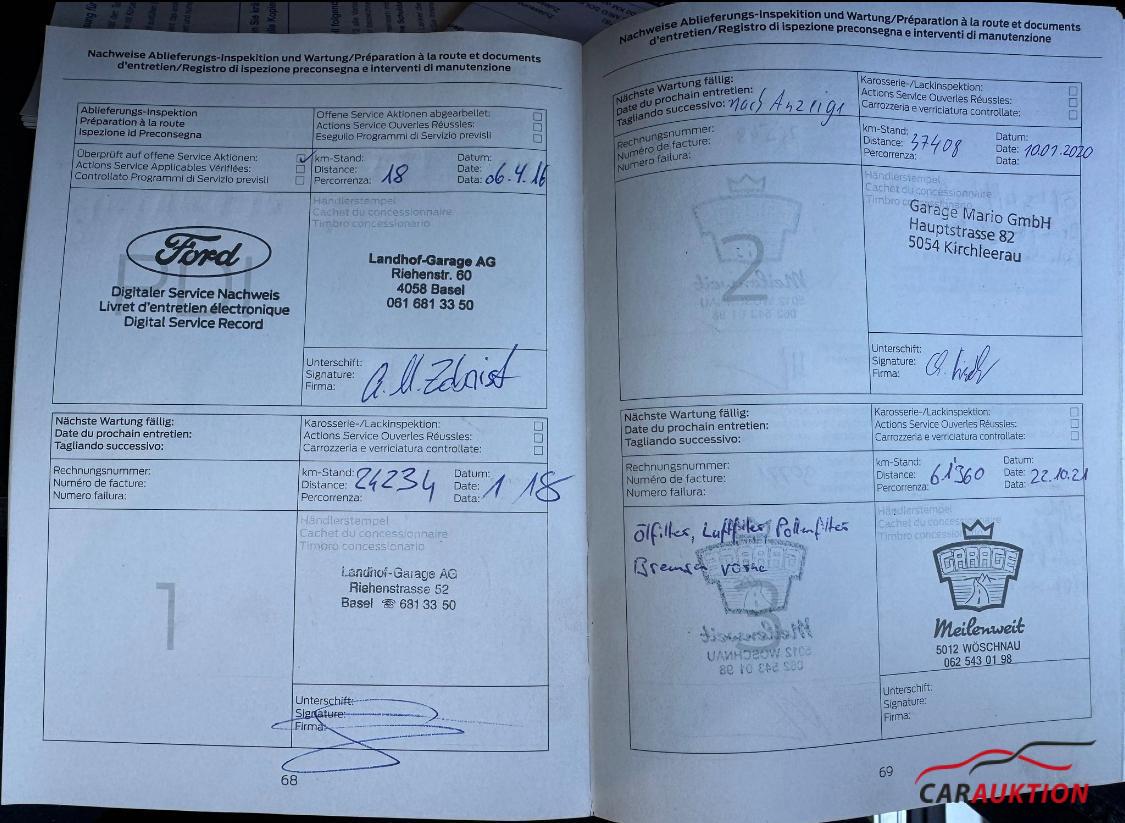 Nachweise Ablieferungs-Inspektion und Wartung/Préparation à la route et documents
d'entretien/Registro di ispezione preconsegna e interventi di manutenzione
Ablieferungs-Inspektion
Préparation à la route
Ispezione Id Preconsegna
Offene Service Aktionen abgearbeitet:
Actions Service Ouverles Réussles:
Esegulio Programmi di Servizio previsli
Überprüft auf offene Service Aktionen:
Actions Service Applicables Vérifiées:
Controllato Programmi di Servizio previsli
km-Stand:
Distance:
Percorrenza:
18
Datum:
Date:
Data:
06.4.16
Ford
Digitaler Service Nachweis
Livret d'entretien électronique
Digital Service Record
PDI
Händlerstempel
Cachet du concessionnaire
Timbro concessionario
Landhof-Garage AG
Riehenstr. 60
4058 Basel
061 681 33 50
Unterschift:
Signature:
Firma:
Nächste Wartung fällig:
Date du prochain entretien:
Tagliando successivo:
Karosserie-/Lackinspektion:
Actions Service Ouverles Réussles:
Carrozzeria e verriciatura controllate:
Rechnungsnummer:
Numéro de facture:
Numero failura:
km-Stand:
Distance:
Percorrenza:
24234
Datum:
Date:
Data:
1 18
1
Händlerstempel
Cachet du concessionnaire
Timbro concessionario
Landhof-Garage AG
Riehenstrasse 52
Basel ☏ 681 33 50
Unterschift:
Signature:
Firma:
68
Nachweise Ablieferungs-Inspektion und Wartung/Préparation à la route et documents
d'entretien/Registro di ispezione preconsegna e interventi di manutenzione
Nächste Wartung fällig:
Date du prochain entretien:
Tagliando successivo:
nach Anzeige
Karosserie-/Lackinspektion:
Actions Service Ouverles Réussles:
Carrozzeria e verriciatura controllate:
Rechnungsnummer:
Numéro de facture:
Numero failura:
km-Stand:
Distance:
Percorrenza:
37408
Datum:
Date:
Data:
10.01.2020
2
Händlerstempel
Cachet du concessionnaire
Timbro concessionario
Garage Mario GmbH
Hauptstrasse 82
5054 Kirchleerau
Unterschift:
Signature:
Firma:
Nächste Wartung fällig:
Date du prochain entretien:
Tagliando successivo:
Karosserie-/Lackinspektion:
Actions Service Ouverles Réussles:
Carrozzeria e verriciatura controllate:
Rechnungsnummer:
Numéro de facture:
Numero failura:
km-Stand:
Distance:
Percorrenza:
61'360
Datum:
Date:
Data:
22.10.21
Ölfilter, Luftfilter, Pollenfilter
Bremsen vorne
3
Händlerstempel
Cachet du concessionnaire
Timbro concessionario
GARAGE
Meilenweit
5012 WÖSCHNAU
062 543 01 98
Unterschift:
Signature:
Firma:
69
CARAUKTION